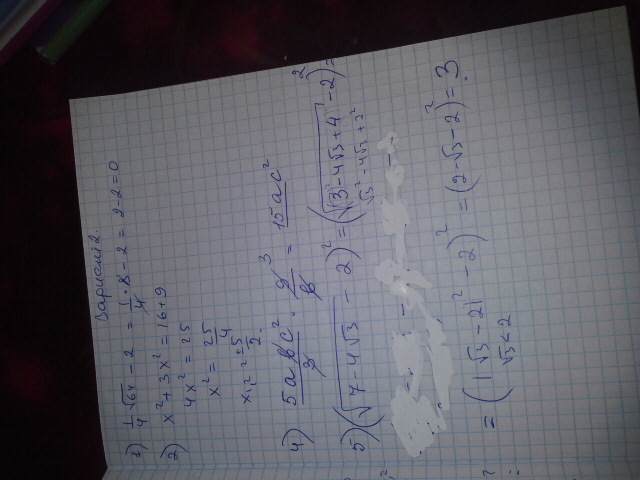 Вариант 2.
1) 1/4 √64 - 2 = 1/4 · 8 - 2 = 2 - 2 = 0
2) x² + 3x² = 16 + 9
4x² = 25
x² = 25/4
x₁,₂ = ±5/2.
4) 5abc²/3 · 9³/b = 15ac²
5) (√(7 - 4√3) - 2)² = (√(√3² - 4√3 + 4) - 2)² =
√3² - 4√3 + 2²
= (|√3 - 2|² - 2)² = (2 - √3 - 2²) = 3
√3 < 2